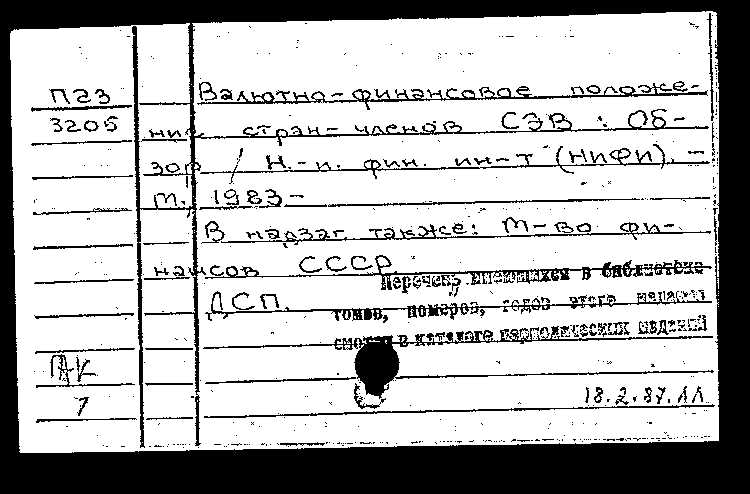 П23 Валютно-финансовое положе-
3205 ние стран-членов СЭВ : Об-
зор / Н.-и. фин. ин-т (НИФИ). -
М., 1983-
В надзаг. также: М-во фи-
нансов СССР
Перечень имеющихся в библиотеке
ДСП.
томов, номеров, годов этого издания
смотри в каталоге периодических изданий
ПК
1
18.2.87.